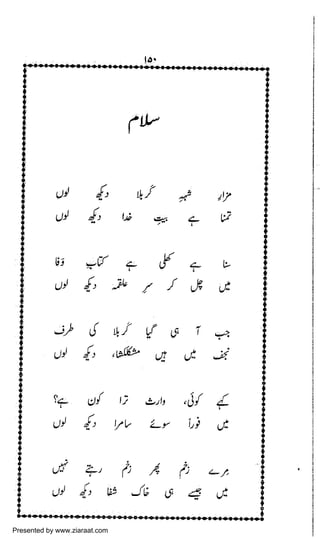 ۱۵۰
سلام
مزارِ شہہِ کربلا دیکھ لوں
تمنا ہے بیتِ خدا دیکھ لوں
سنا ہے کھلی ہے کتابِ وفا
میں چل کر سرِ علقمہ دیکھ لوں
جب آ ہی گیا کربلا کی طرف
نجف میں ہیں مشکلکشاء، دیکھ لوں
کہے کوئی، وارث ترا کون ہے؟
میں فوراً سوئے سامرا دیکھ لوں
مرے زخم پھر زخم رہتے نہیں
میں جیسے ہی خاکِ شفا دیکھ لوں
Presented by www.ziaraat.com